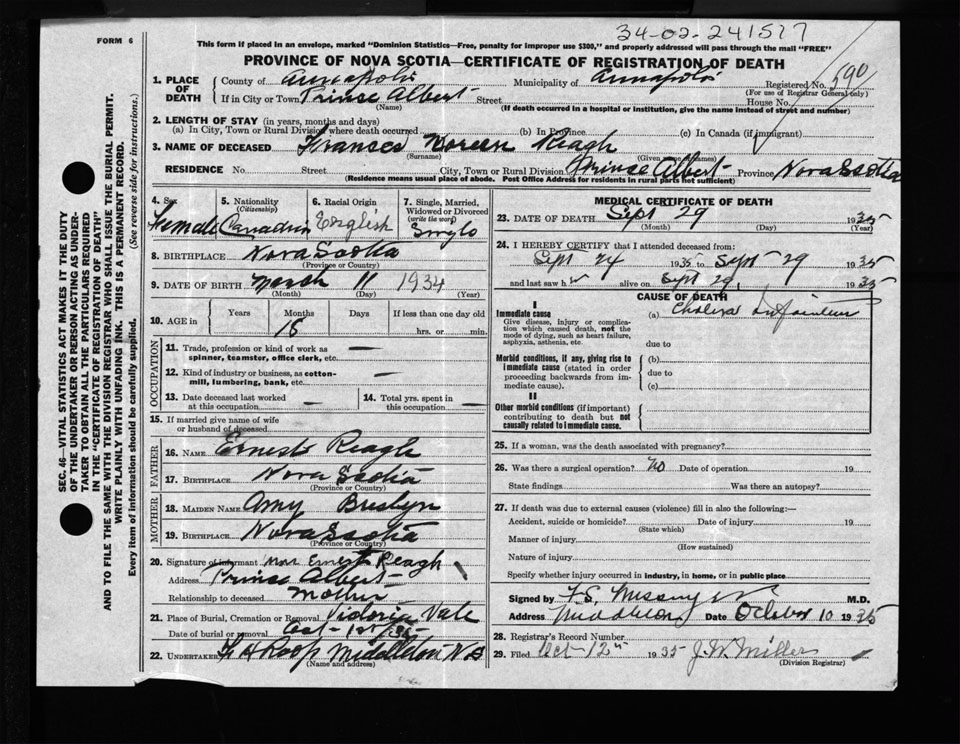 34-02-241517
FORM 6
This form if placed in an envelope, marked "Dominion Statistics—Free, penalty for improper use $300," and properly addressed will pass through the mail "FREE"
PROVINCE OF NOVA SCOTIA—CERTIFICATE OF REGISTRATION OF DEATH
SEC. 46—VITAL STATISTICS ACT MAKES IT THE DUTY
OF THE UNDERTAKER OR PERSON ACTING AS UNDER-
TAKER TO OBTAIN ALL THE PARTICULARS REQUIRED
IN THE "CERTIFICATE OF REGISTRATION OF DEATH"
AND TO FILE THE SAME WITH THE DIVISION REGISTRAR WHO SHALL ISSUE THE BURIAL PERMIT.
WRITE PLAINLY WITH UNFADING INK. THIS IS A PERMANENT RECORD.
Every item of information should be carefully supplied. (See reverse side for instructions.)
1. PLACE OF DEATH County of Annapolis Municipality of Annapolis Registered No. 590
(For use of Registrar General only)
If in City or Town Prince Albert Street House No.
(Name) (If death occurred in a hospital or institution, give the name instead of street and number)
2. LENGTH OF STAY (in years, months and days)
(a) In City, Town or Rural Division where death occurred (b) In Province (c) In Canada (if immigrant)
3. NAME OF DECEASED Frances Noreen Reagh
(Surname) (Given or Christian names)
RESIDENCE No. Street City, Town or Rural Division Prince Albert Province Nova Scotia
(Residence means usual place of abode. Post Office Address for residents in rural parts not sufficient)
4. Sex Female
5. Nationality (Citizenship) Canadian
6. Racial Origin English
7. Single, Married, Widowed or Divorced (write the word) Single
8. BIRTHPLACE Nova Scotia
(Province or Country)
9. DATE OF BIRTH March 11 1934
(Month) (Day) (Year)
10. AGE in Years Months Days If less than one day old
18 hrs. or min.
OCCUPATION
11. Trade, profession or kind of work as spinner, teamster, office clerk, etc. —
12. Kind of industry or business, as cotton-mill, lumbering, bank, etc. —
13. Date deceased last worked at this occupation —
14. Total yrs. spent in this occupation —
15. If married give name of wife or husband of deceased
FATHER
16. NAME Ernest Reagh
17. BIRTHPLACE Nova Scotia
(Province or Country)
MOTHER
18. MAIDEN NAME Amy
19. BIRTHPLACE Nova Scotia
(Province or Country)
20. Signature of informant Mrs Ernest Reagh
Address Prince Albert
Relationship to deceased mother
21. Place of Burial, Cremation or Removal Victoria Vale
Date of burial or removal Oct 1st/35
22. UNDERTAKER Roop Middleton N S
(Name and address)
MEDICAL CERTIFICATE OF DEATH
23. DATE OF DEATH Sept 29 1935
(Month) (Day) (Year)
24. I HEREBY CERTIFY that I attended deceased from:
Sept 24 1935 to Sept 29 1935
and last saw h alive on Sept 29, 1935
CAUSE OF DEATH
I
Immediate cause
Give disease, injury or complication which caused death, not the mode of dying, such as heart failure, asphyxia, asthenia, etc.
(a) Cholera Infantum
due to
Morbid conditions, if any, giving rise to immediate cause (stated in order proceeding backwards from immediate cause).
(b)
due to
(c)
II
Other morbid conditions (if important) contributing to death but not causally related to immediate cause.
25. If a woman, was the death associated with pregnancy?
26. Was there a surgical operation? no Date of operation 19
State findings Was there an autopsy?
27. If death was due to external causes (violence) fill in also the following:—
Accident, suicide or homicide? Date of injury 19
(State which)
Manner of injury
(How sustained)
Nature of injury
Specify whether injury occurred in industry, in home, or in public place
Signed by M.D.
Address Middleton Date October 10 1935
28. Registrar's Record Number
29. Filed Oct 12th 1935 J. W. Miller
(Division Registrar)